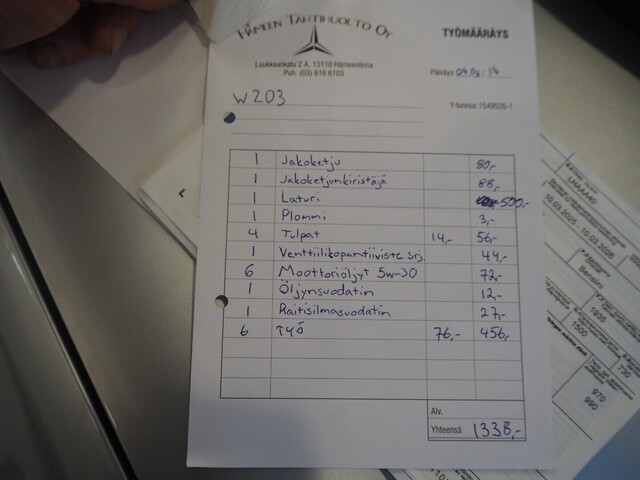 HÄMEEN TÄHTIHUOLTO OY
TYÖMÄÄRÄYS
Luukkaankatu 2 A, 13110 Hämeenlinna
Puh. (03) 616 6103
Päiväys
W203
Y-tunnus 1549526-1
1 Jakoketju 80,-
1 Jakoketjunkiristäjä 88,-
1 Laturi 500,-
1 Plommi 3,-
4 Tulpat 14,- 56,-
1 44,-
6 Moottoriöljyt 5w-30 72,-
1 Öljynsuodatin 12,-
1 Raitisilmasuodatin 27,-
6 TYÖ 76,- 456,-
Alv.
Yhteensä 1338,-
10.03.2025 - 10.03.2026
Bensiini
1935
1500
730
970
990